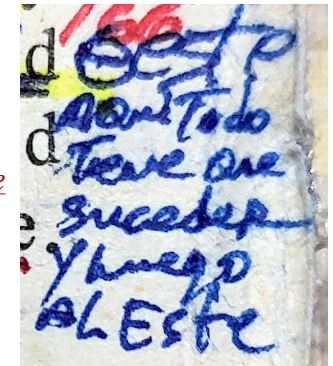 166
d Oeste
d Aquí Todo
Tiene que
e suceder
e. y luego
AL Este